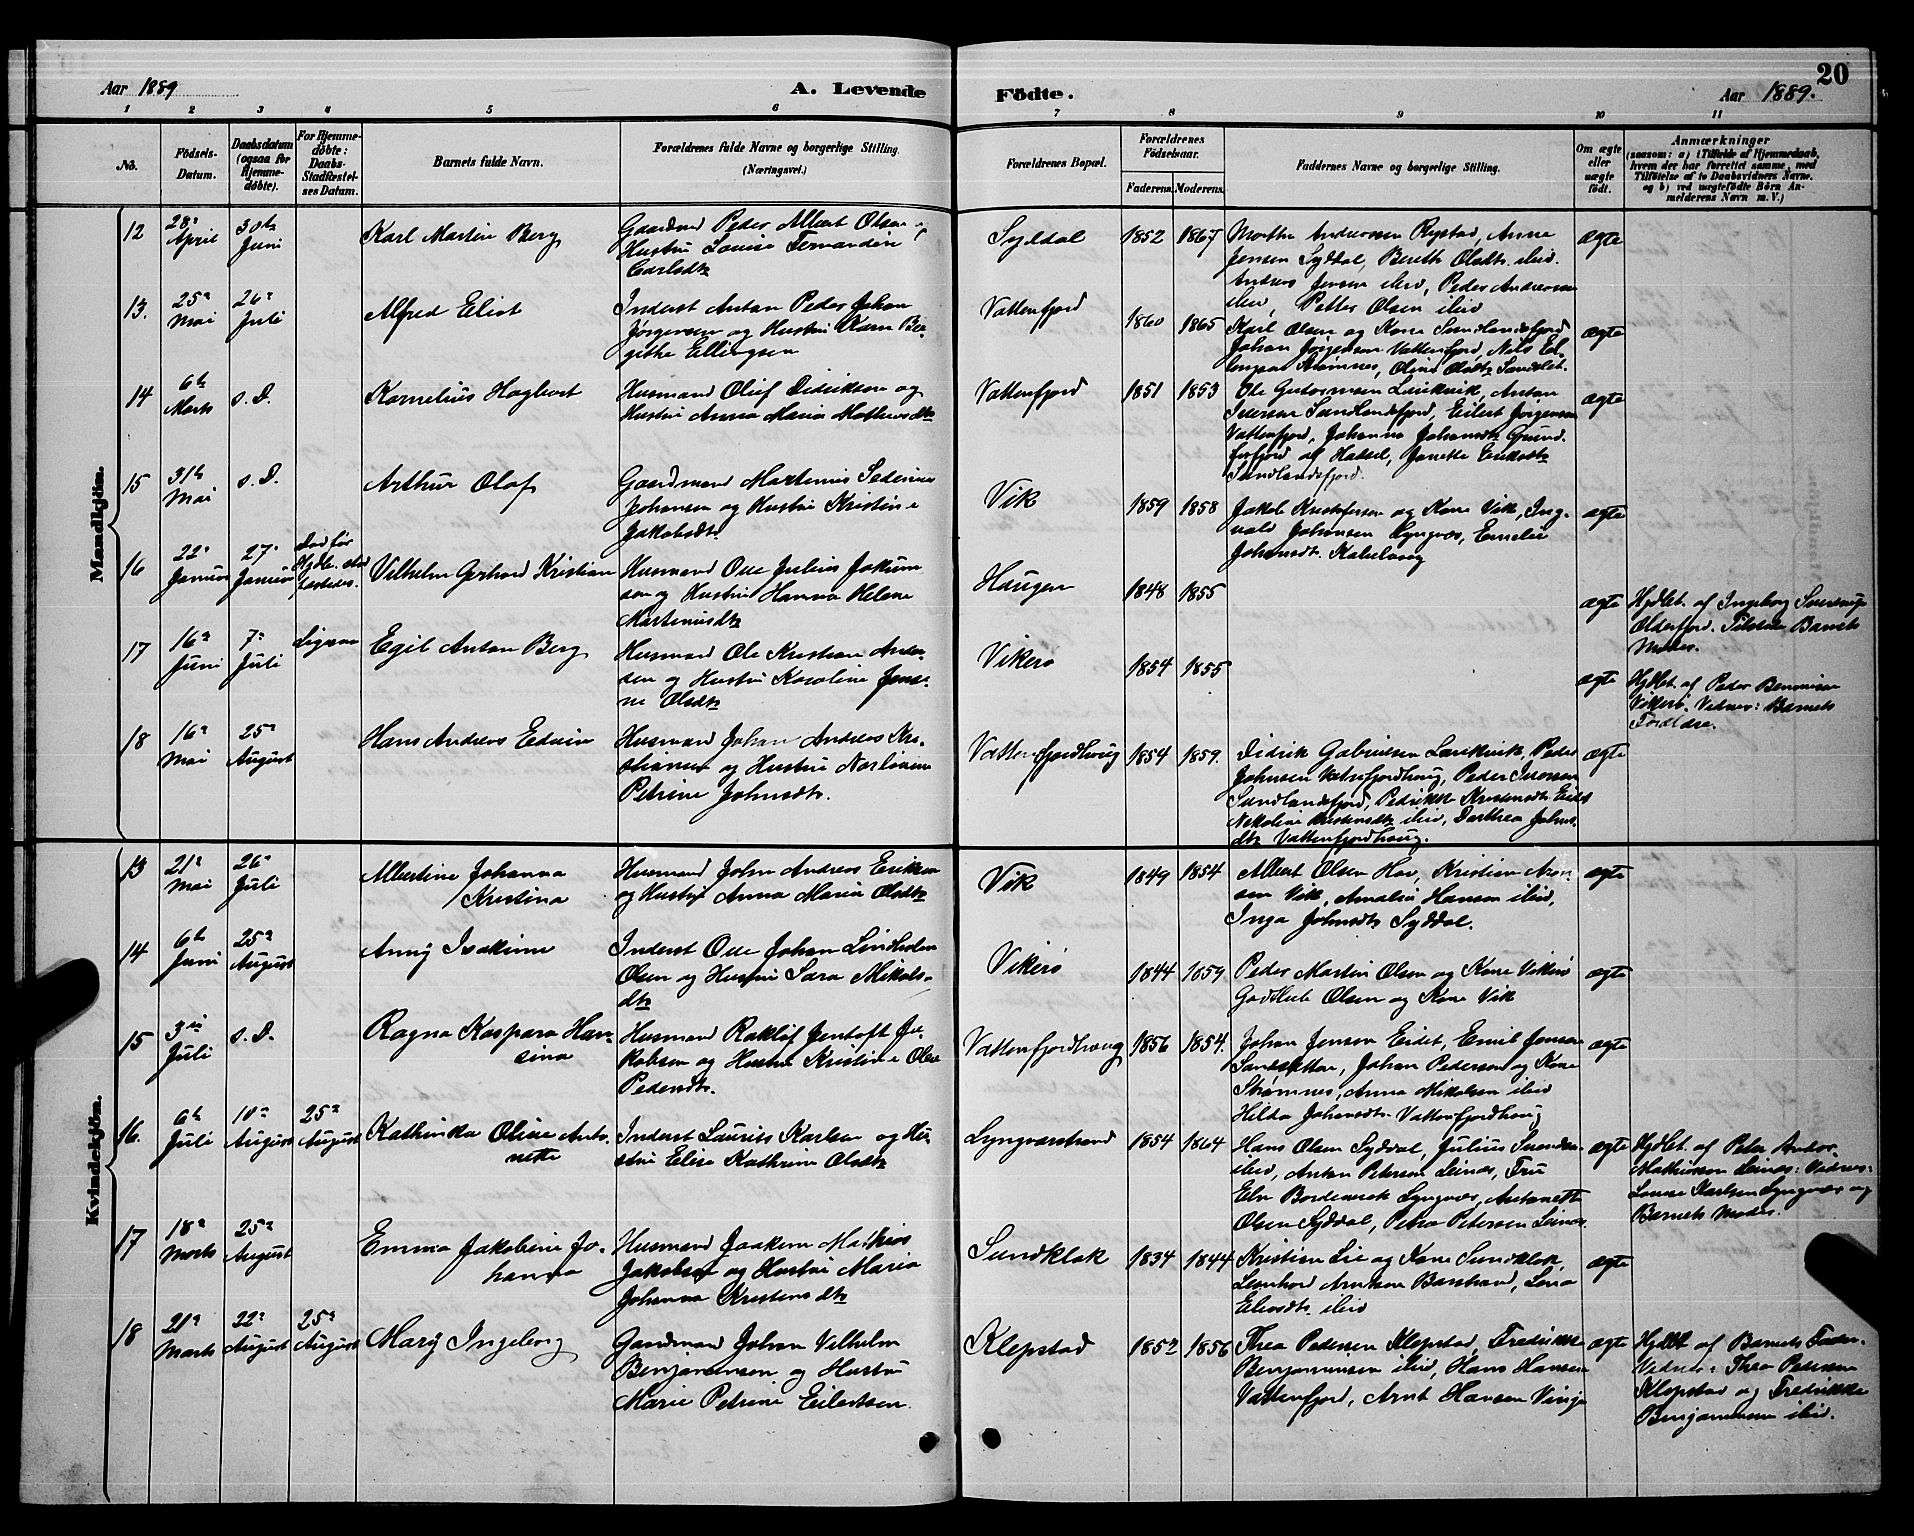 Aar 1889 A. Levende Födte. Aar 1889. 20
1 2 3 4 5 6 7 8 9 10 11
No.
Födsels-Datum.
Daabsdatum (ogsaa for Hjemme-döbte).
For Hjemme-döbte: Daabs-Stadfæstel-ses Datum.
Barnets fulde Navn.
Forældrenes fulde Navne og borgerlige Stilling. (Næringsvei.)
Forældrenes Bopæl.
Forældrenes Födselsaar.
Faderens. Moderens.
Faddernes Navne og borgerlige Stilling.
Om ægte eller uægte födt.
Anmærkninger
(saasom: a) i Tilfælde af Hjemmedaab,
hvem der har forrettet samme, med
Tilföielse af to Daabsvidners Navne,
og b) ved uægtefödte Börn An-
melderens Navn m. V.)
Mandkjön.
12 28de April 30te Juni
Karl Martin Berg
Gaardmd Peder Albert Olsen og
Hustru Louise Fernanden
Carlsdtr
Syldal 1852 1867
Morthe Andreassen Rystad, Anne
Jensen Syddal, Bereth Olsdtr ibid.
Andreas Jensen ibid, Peder Andreassen
ibid, Petter Olsen ibid
ægte
13. 25de Mai 26de Juli
Alfred Eliot
Inderst Anton Peder Johan
Jörgensen og Hustru Karen Ber-
githe Ellingsen
Vattenfjord 1860 1865
Karl Olsen og Kone Sundlandsfjord
Johan Jörgensen Vattenfjord, Nils El-
lingsen Strömnes, Oline Olsdtr Sandslet.
ægte
14 6te Marts s. D.
Kornelius Hagbart
Husmand Oluf Didriksen og
Hustru Anna Maria Mathiasdtr
Vattenfjord 1851 1853
Ole Gustavsen Laukvik, Anton
Iversen Sundlandsfjord, Eilert Jörgensen
Vattenfjord, Johanna Johansdtr Grund-
forfjord af Hadsel, Janette Eriksdtr
Sundlandsfjord.
ægte
15 31te Mai s. D.
Arthur Olaf
Gaardmand Martinus Sedenius
Johansen og Hustru Kristine
Jakobsdtr
Vik 1859 1858
Jakob Kristofersen og Kone Vik, Ing-
vald Johansen Lyngvær, Emelie
Johansdtr. Kabelvaag
ægte
16 22de Januar 27de Januar
Död för Hjdb. stad-fæstedes.
Vilhelm Gerhard Kristian
Husmand Ove Julius Jokum
sen og Hustru Hanna Helene
Martinusdtr
Haugen 1848 1855
ægte
Hjdbt. af Ingeborg Sverdrup
Olderfjord. Tilstede Barnets
Moder.
17 16de Juni 7de Juli
Egil Anton Berg
Husmand Ole Kristian Ander-
sen og Hustru Karoline Jensi-
ne Olsdtr
Vikerö 1854 1855
ægte
Hjdbt. af Peder Benonisen
Vikerö. Vidner: Barnets
Forældre.
18 16de Mai 25de August
Hans Andreas Edvin
Husmand Johan Andreas Kri-
stiansen og Hustru
Petrine Johnsdtr.
Vattenfjordhoug 1854 1859.
Didrik Gabrielsen Laukvik, Peder
Johnsen Vattenfjordhoug, Peder Iversen
Sundlandsfjord, Pedrikke Kristensdtr Eidet
Nekoline Kristensdtr ibid, Dorthea Johns-
dtr Vattenfjordhoug.
ægte
Kvindekjön.
13 21de Mai 26de Juli
Albertine Johanna
Kristina
Husmand John Andreas Eriksen
og Hustru Anna Maria Olsdtr
Vik 1849 1854
Albert Olsen Hov, Kristian Aron-
sen Vik, Amalie Hansen ibid,
Inga Johnsdtr Syddal.
ægte
14 6te Juni 25de August
Anny Isakine
Inderst Ove Johan Lindholm
Olsen og Hustru Sara Mikals-
dtr
Vikerö 1844 1859
Peder Martin Olsen og Kone Vikerö
Godtlieb Olsen og Kone Vik
ægte
15 3die Juli s. D.
Ragna Kaspara Han-
sina
Husmand Raklöf Jentoft Ja-
kobsen og Hustru Kristine Olea
Pedersdtr.
Vattenfjordhoug 1856 1854.
Johan Jensen Eidet, Emil Jensen
Sandsletten, Johan Pedersen og Kone
Strömnes, Anna Mikelsen ibid
Hilda Johansdtr. Vattenfjordhoug
ægte
16. 6te Juli 10de August 25de August
Kathinka Oline Anto-
nette
Inderst Laurits Karlsen og Hu-
stru Elise Kathrine Olsdtr
Lyngværstrand 1854 1864
Hans Olsen Syddal, Julius Svendsen
ibid, Anton Petersen Leines, Fru
Eln Bordevick Lyngvær, Antonette
Olsen Syddal, Petra Petersen Leines.
ægte
Hjdbt. af Peter Andor
Mathiassen Leines: Vidner:
Louise Karlsen Lyngvær og
Barnets Moder.
17 18de Marts 25de August
Emma Jakobine Jo-
hanna
Husmand Joakim Mathias
Jakobsen og Hustru Maria
Johanna Kristensdtr
Sundklak 1834 1844
Kristian Lie og Kone Sundklak,
Leonhard Arntsen Barstrand, Lena
Eliasdtr. ibid
ægte
18 21de Marts 22de August 25de August
Mary Ingeborg
Gaardmand Johan Vilhelm
Benjaminsen og Hustru
Marie Petrine Eilertsen.
Klepstad 1852 1856
Thea Pedersen Klepstad, Fredrikke
Benjaminsen ibid, Hans Hansen
Vattenfjord, Arnt Hansen Vinje
ægte
Hjdbt af Barnets Fader.
Vidner: Thea Pedersen
Klepstad og Fredrikke
Benjaminsen ibid.